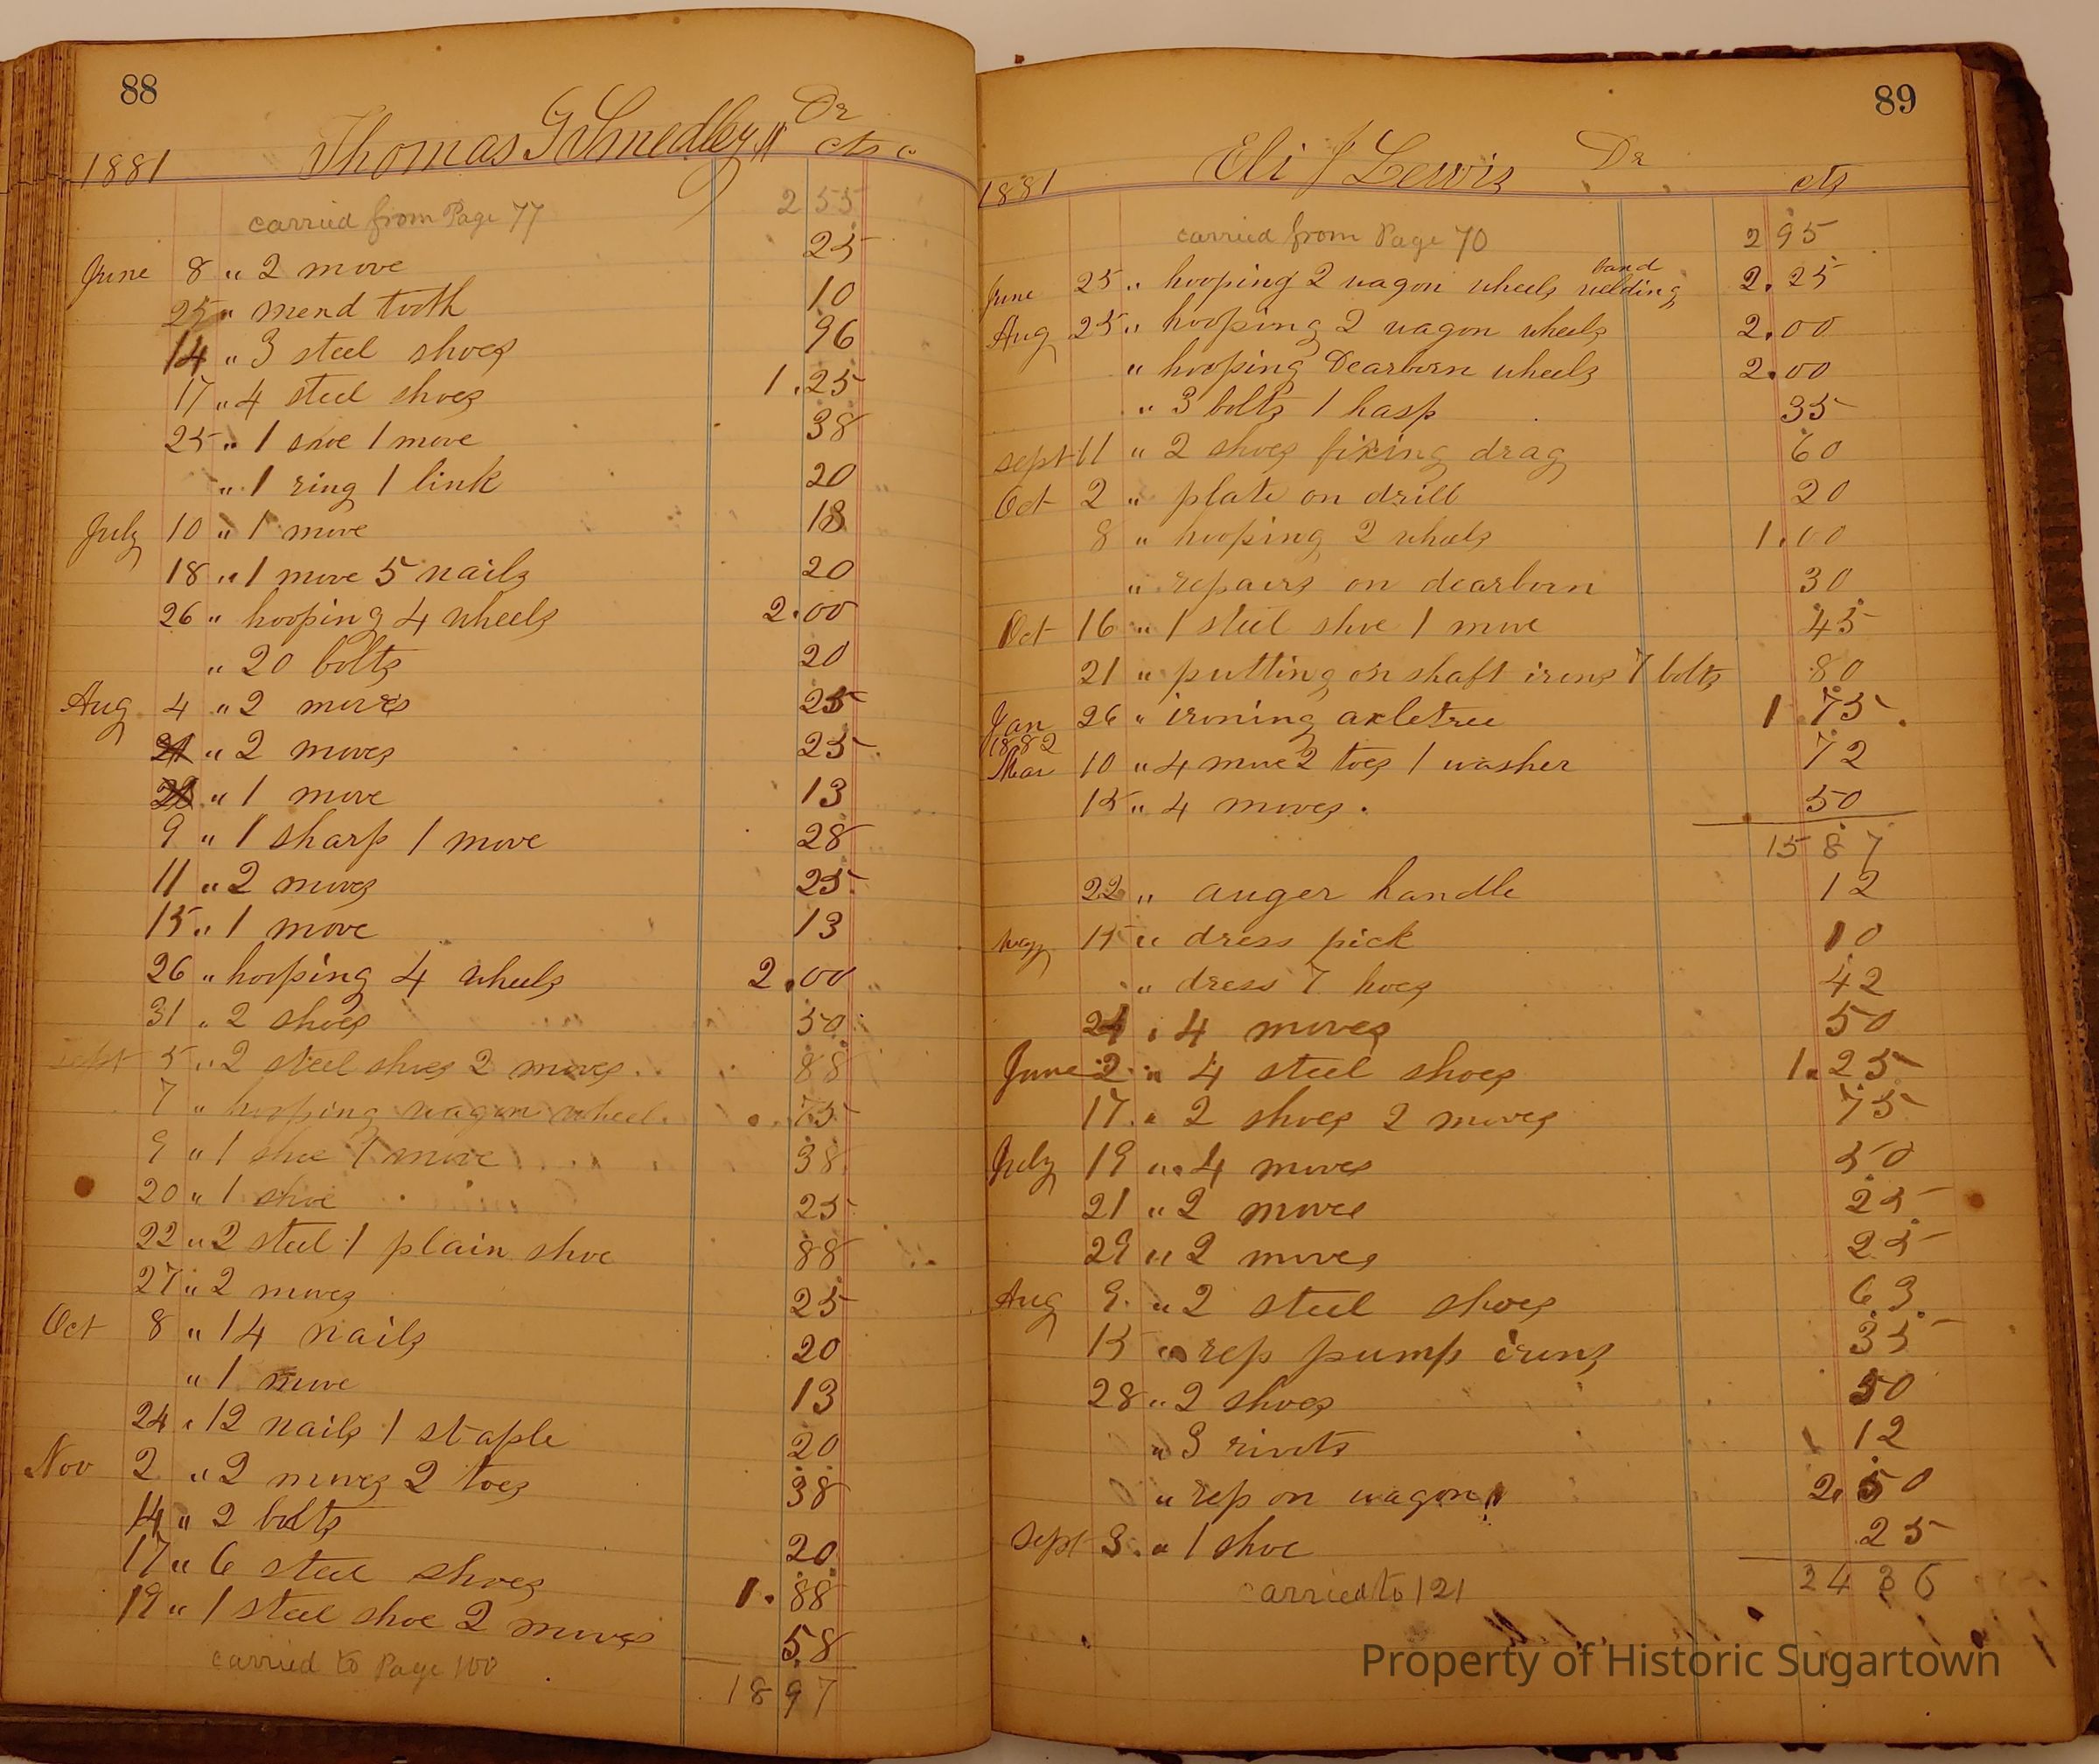 88
Thomas G Smedley Dr
1881 cts c
carried from Page 77 2 55
June 8 " 2 move 25
25 " mend tooth 10
14 " 3 steel shoes 96
17 " 4 steel shoes 1.25
25 " 1 shoe 1 move 38
" 1 ring 1 link 20
July 10 " 1 move 18
18 " 1 move 5 nails 20
26 " hooping 4 wheels 2.00
" 20 bolts 20
Aug 4 " 2 moves 25
21 " 2 moves 25
" 1 move 13
9 " 1 sharp 1 move 28
11 " 2 moves 25
15 " 1 move 13
26 " hooping 4 wheels 2.00
31 " 2 shoes 50
Sept 5 " 2 steel shoes 2 moves 88
7 " hooping wagon wheel 75
9 " 1 shoe 1 move 38
20 " 1 shoe 25
22 " 2 steel 1 plain shoe 88
27 " 2 moves 25
Oct 8 " 14 nails 20
" 1 move 13
24 " 12 nails 1 staple 20
Nov 2 " 2 moves 2 toes 38
14 " 2 bolts 20
17 " 6 steel shoes 1.88
19 " 1 steel shoe 2 moves 58
carried to Page 100
18 97
89
Eli J Lewis Dr
1881 cts
carried from Page 70 2 95
June 25 " hooping 2 wagon wheels band welding 2.25
Aug 25 " hooping 2 wagon wheels 2.00
" hooping Dearborn wheels 2.00
" 3 bolts 1 hasp 35
Sept 11 " 2 shoes fixing drag 60
Oct 2 " plate on drill 20
8 " hooping 2 wheels 1.00
" repairs on dearborn 30
Oct 16 " 1 steel shoe 1 move 45
21 " putting on shaft irons 7 bolts 80
Jan 26 " ironing axletree 1.75
1882
Mar 10 " 4 move 2 toes 1 washer 72
15 " 4 moves. 50
15 87
22 " auger handle 12
may 15 " dress pick 10
" dress 7 hoes 42
24 " 4 moves 50
June 2 " 4 steel shoes 1.25
17 " 2 shoes 2 moves 75
July 19 " 4 moves 50
21 " 2 moves 25
29 " 2 moves 25
Aug 9. " 2 steel shoes 63
15 " rep pump irons 35
28 " 2 shoes 50
" 3 rivets 12
" rep on wagon 2.50
Sept 3. " 1 shoe 25
carried to 121 24 36
Property of Historic Sugartown